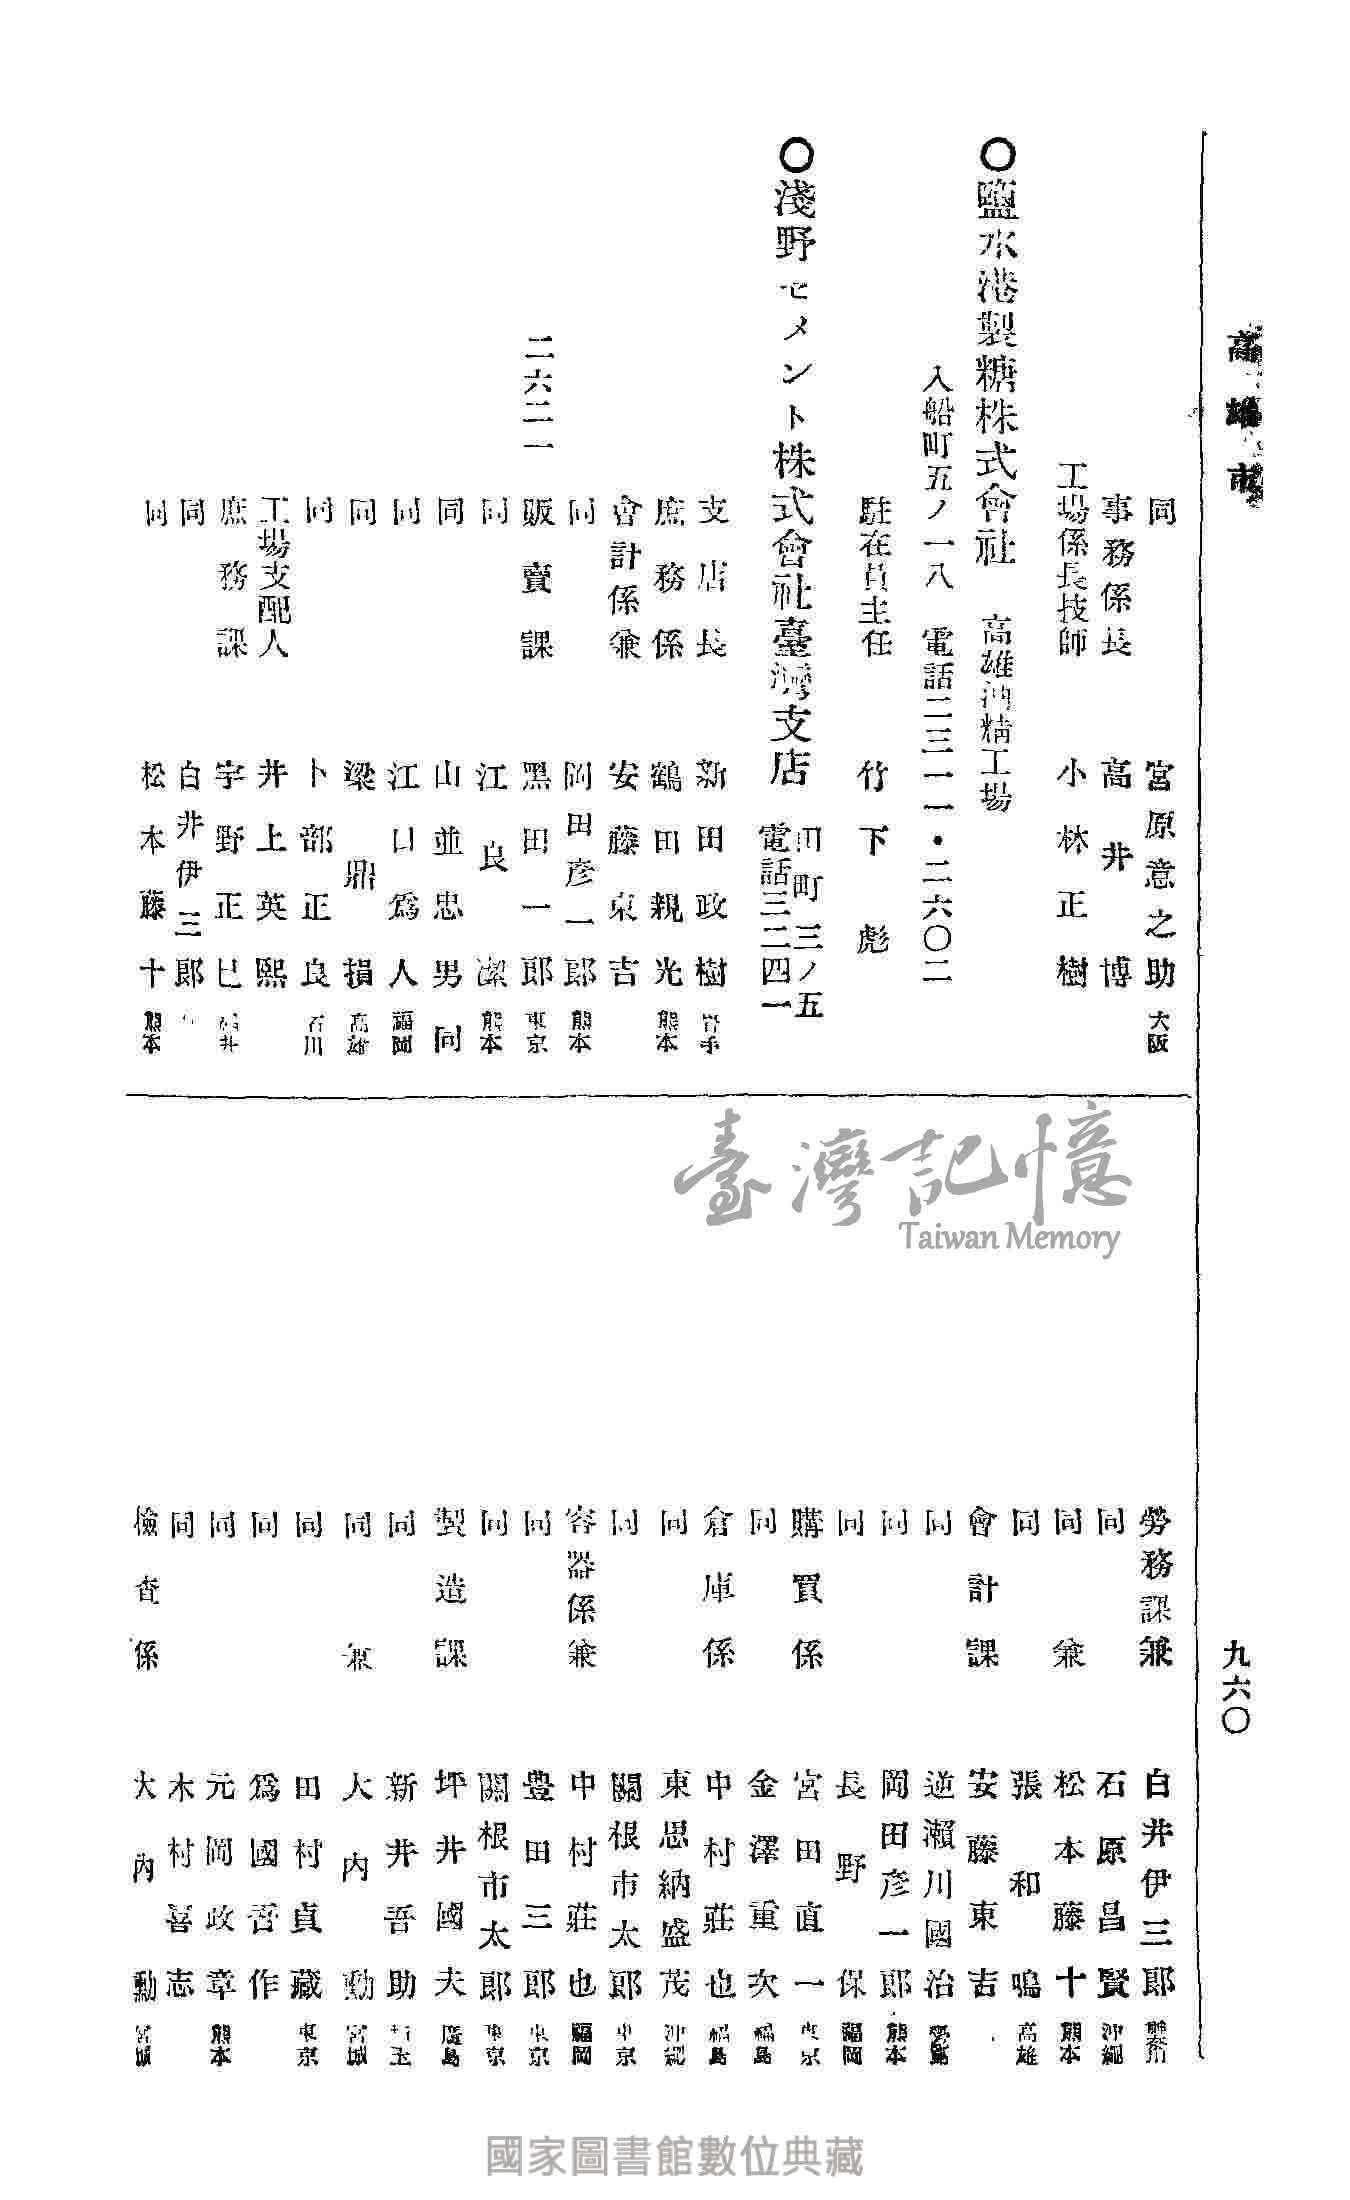 高雄市
同 宮原意之助 大阪
事務係長 高井博
工場係長技師 小林正樹
〇鹽水港製糖株式會社 高雄油精工場
入船町五ノ一八 電話二三一一・二六〇二
駐在員主任 竹下彪
〇淺野セメント株式會社臺灣支店
田町三ノ五
電話三二四一
二六二一
支店長 新田政樹 岩手
庶務係 鶴田親光 熊本
會計係兼 安藤東吉
同 岡田彥一郎 熊本
販賣課 黑田一郎 東京
同 江良潔 熊本
同 山並忠男 同
同 江口爲人 福岡
同 梁鼎損 高雄
同 卜部正良 石川
工場支配人 井上英熙
庶務課 宇野正巳 福井
同 白井伊三郎
同 松本藤十 熊本
九六〇
勞務課兼 白井伊三郎 神奈川
同 石原昌賢 沖繩
同兼 松本藤十 熊本
同 張和鳴 高雄
會計課 安藤東吉
同 逆瀨川國治
同 岡田彥一郎 熊本
同 長野保 福岡
購買係 宮田直一 東京
同 金澤重次 福島
倉庫係 中村莊也 福島
同 東恩納盛茂 沖繩
同 關根市太郎 東京
容器係兼 中村莊也 福岡
同 豊田三郎 東京
同 關根市太郎 東京
製造課 坪井國夫 廣島
同 新井吾助 埼玉
同兼 大內勳 宮城
同 田村貞藏 東京
同 爲國吾作
同 元岡政章 熊本
同 木村喜志
檢查係 大內勳 宮城
臺灣記憶
Taiwan Memory
國家圖書館數位典藏